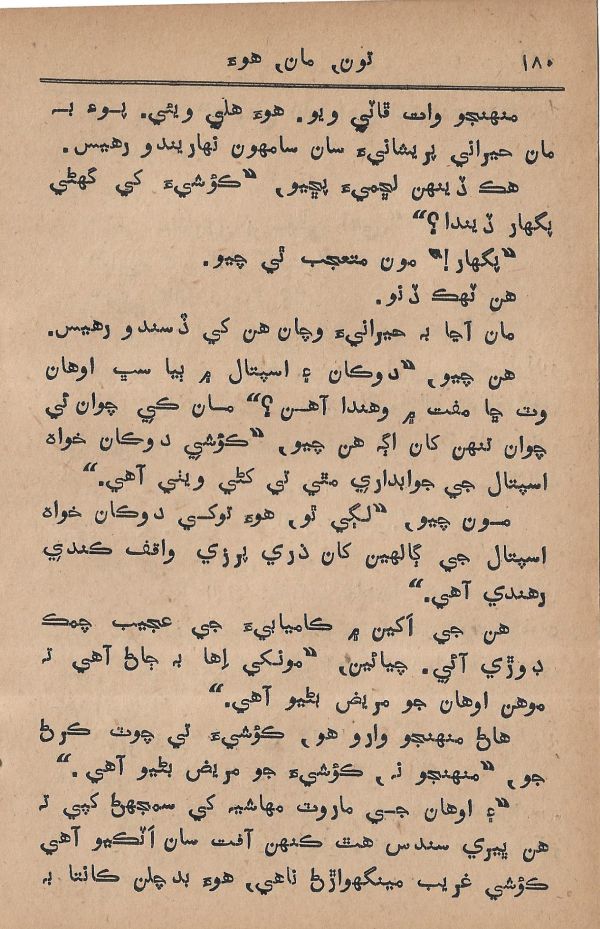 ١٨٠ تون, مان, هوءَ
منهنجو وات ڦاٽي ويو. هوءَ هلي ويئي. پوءِ بہ
مان حيراني پريشانيءَ سان سامهون نهاريندو رهيس.
هڪ ڏينهن لڇميءَ پڇيو, ”ڪؤشيءَ کي گهڻي
پگهار ڏيندا؟“
”پگهار!“ مون متعجب ٿي چيو.
هن ٽهڪ ڏنو.
مان اڃا بہ حيرانيءَ وچان هن کي ڏسندو رهيس.
هن چيو, ”دوڪان ۽ اسپتال ۾ ٻيا سڀ اوهان
وٽ ڇا مفت ۾ وهندا آهن؟“ مان ڪي چوان ئي
چوان تنهن کان اڳہ هن چيو, ”ڪؤشي دوڪان خواه
اسپتال جي جوابداري مٿي تي کڻي ويٺي آهي.“
مون چيو, ”لڳي ٿو, هوءَ توکي دوڪان خواه
اسپتال جي ڳالهين کان ذري پرزي واقف ڪندي
رهندي آهي.“
هن جي اَکين ۾ ڪاميابيءَ جي عجيب چمڪ
ڊوڙي آئي. چيائين, ”مونکي اِها بہ ڄاڻ آهي تہ
موهن اوهان جو مريض بڻيو آهي.“
هاڻ منهنجو وارو هو, ڪؤشيءَ تي چوٽ ڪرڻ
جو, ”منهنجو نہ, ڪؤشيءَ جو مريض بڻيو آهي.“
”۽ اوهان جي ماروت مهاشيہ کي سمجهڻ کپي تہ
هن ڀيري سندس هٿ ڪنهن آفت سان اَٽڪيو آهي
ڪؤشي غريب مينگهواڙڻ ناهي, هوءَ بدچلن ڪانتا بہ